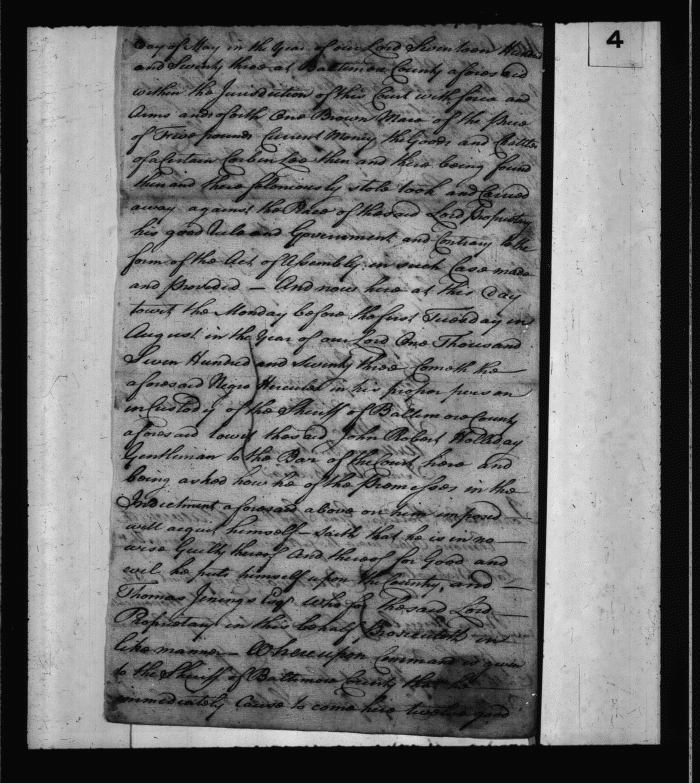 4
Day of May in the Year of our Lord Seventeen Hundred
and Seventy three at Baltimore County aforesaid
within the Jurisdiction of this Court with force and
Arms and so forth One Brown Mare of the price
of Five pounds Current Money the Goods and Chattles
of a Certain Corbin Lee then and there being found
then and there feloniously stole took and Carried
away against the Peace of the said Lord Proprietary
his good Rule and Government and Contrary to the
form of the Act of Assembly in such Case made
and provided — And now here at this day
towit the Monday before the first Tuesday in
August in the Year of our Lord One Thousand
Seven Hundred and Seventy three Cometh the
aforesaid Negro Hercules in his proper person
in Custody of the Sheriff of Baltimore County
aforesaid towit the said John Robert Holliday
Gentleman to the Bar of the Court here and
being asked how he of the Premisses in the
Indictment aforesaid above on him imposed
will acquit himself — saith that he is in no —
wise Guilty thereof And thereof for Good and
evil he puts himself upon the Country, and —
Thomas Jenings Esqr. Who for the said Lord —
Proprietary in this behalf prosecuteth in
like manner — Whereupon Command is given
to the Sheriff of Baltimore County that he
immediately Cause to come here twelve good